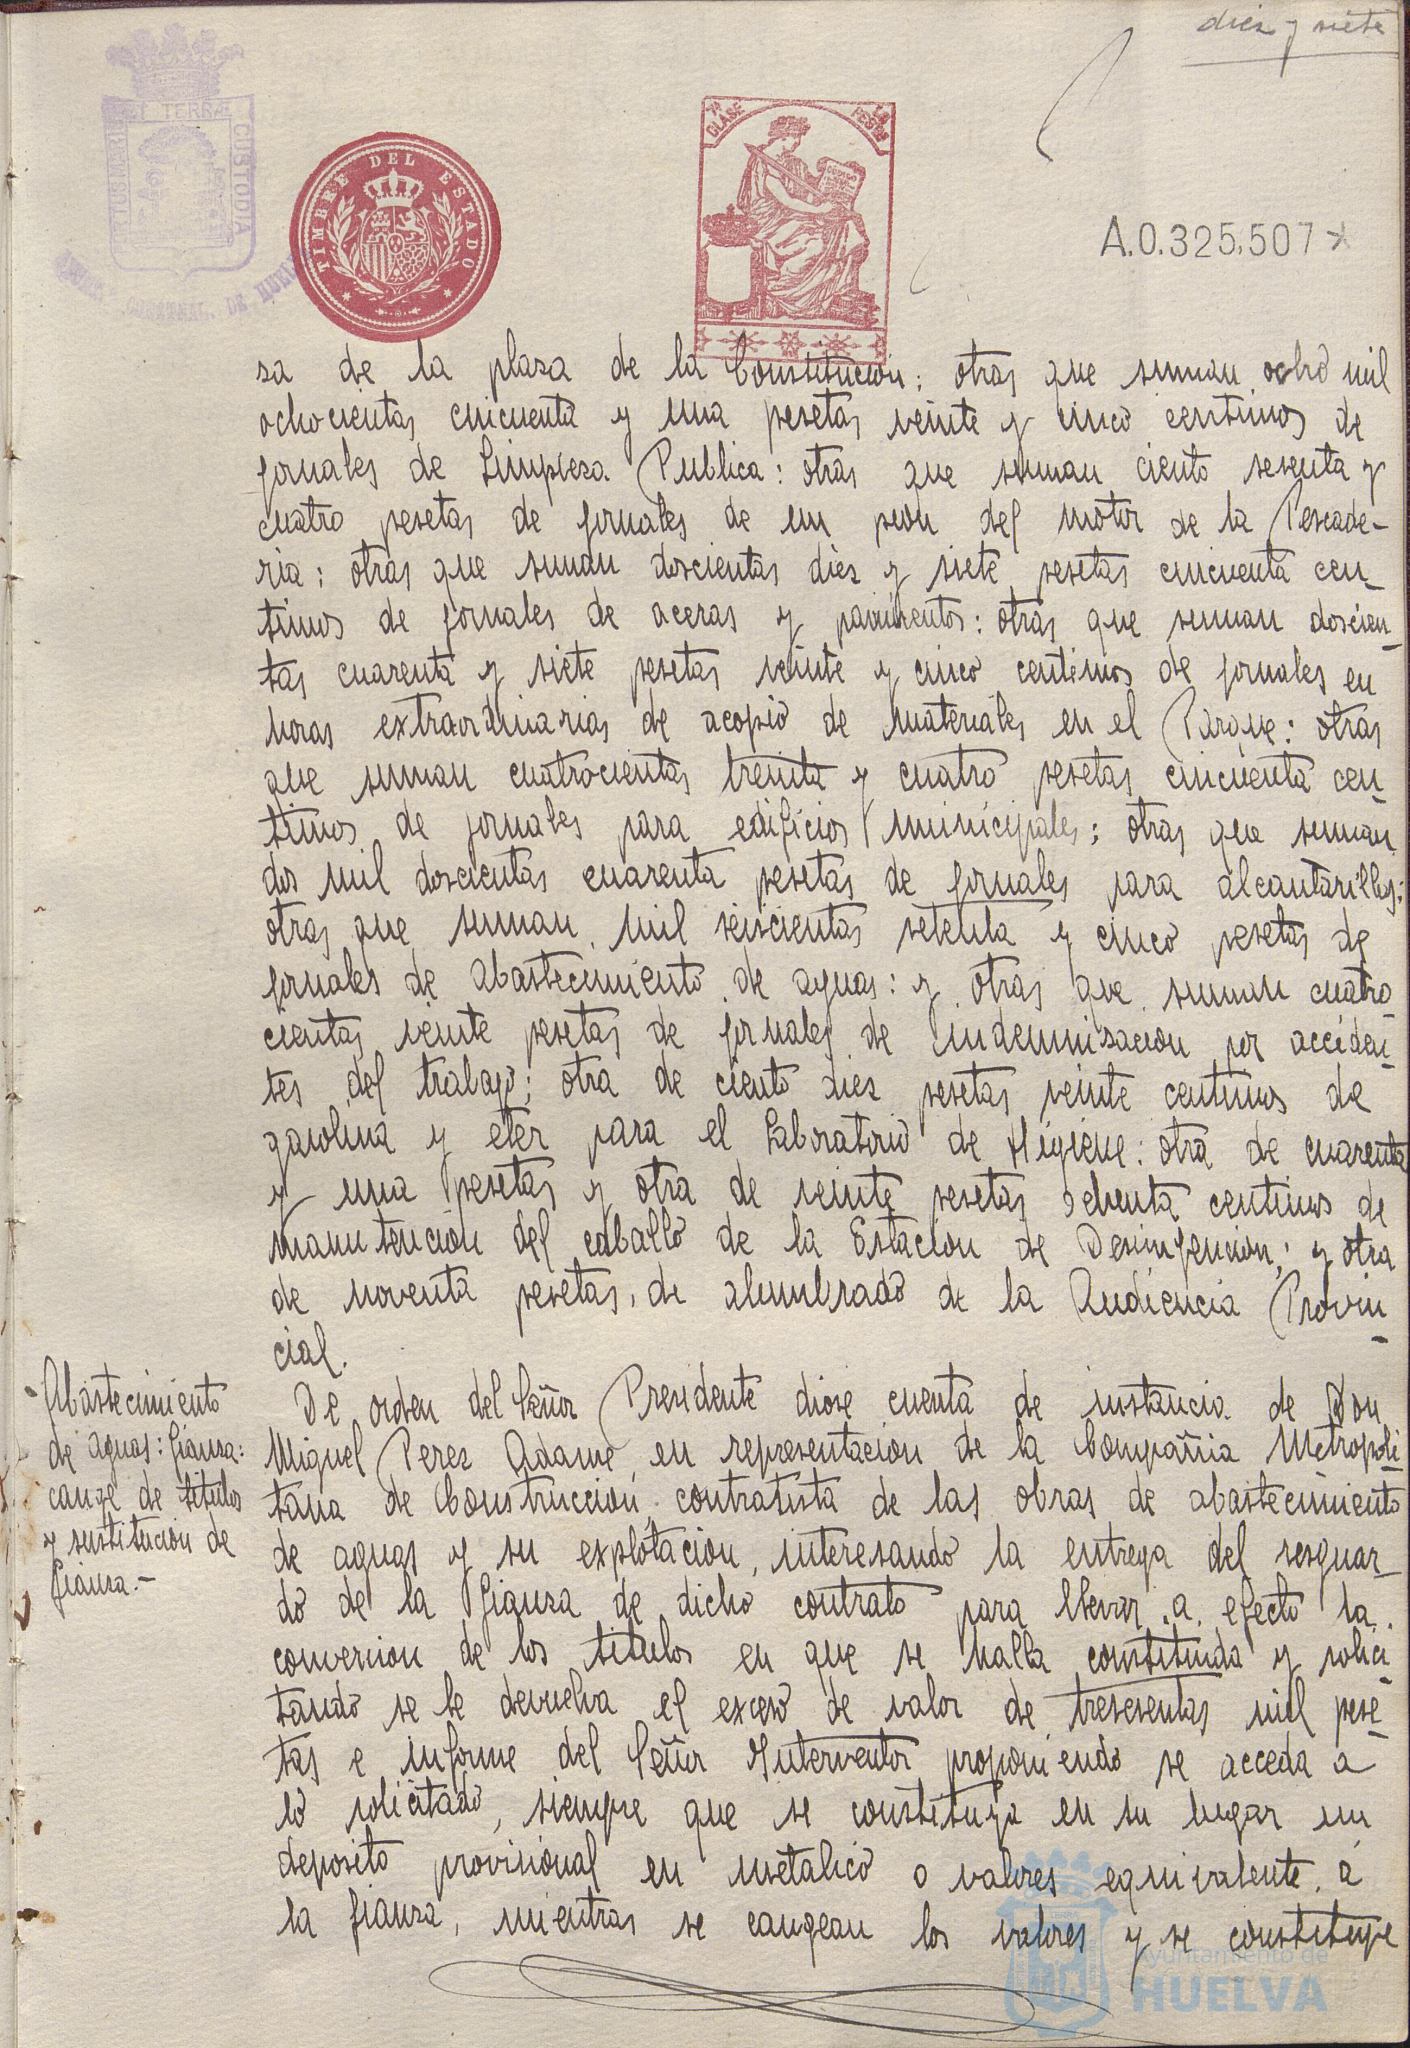 diez y siete
PORTUS MARIS ET TERRÆ CUSTODIA
TIMBRE DEL ESTADO
7ª CLASE
A.0.325,507*
za de la plaza de la Constitución; otras que suman ocho mil
ochocientas cincuenta y una pesetas veinte y cinco centimos de
jornales de Limpieza Publica: otras que suman ciento sesenta y
cuatro pesetas de jornales de un peon del motor de la Pescade-
ria: otras que suman doscientas diez y siete pesetas cincuenta cen-
timos de jornales de aceras y pavimentos: otras que suman doscien-
tas cuarenta y siete pesetas veinte y cinco centimos de jornales en
horas extraordinarias de acopio de materiales en el Parque: otras
que suman cuatrocientas treinta y cuatro pesetas cincuenta cen-
timos de jornales para edificios municipales; otras que suman
dos mil doscientas cuarenta pesetas de jornales para alcantarillas:
otras que suman mil seiscientas setenta y cinco pesetas de
jornales de abastecimiento de aguas: y otras que suman cuatro-
cientas veinte pesetas de jornales de indemnizacion por acciden-
tes del trabajo; otra de ciento diez pesetas veinte centimos de
gasolina y eter para el Laboratorio de Higiene: otra de cuarenta
y una pesetas y otra de veinte pesetas ochenta centimos de
manutención del caballo de la Estación de Desinfeccion; y otra
de noventa pesetas, de alumbrado de la Audiencia Provin-
cial.
Abastecimiento
de aguas: fianza:
cange de titulos
y sustitucion de
fianza.-
De orden del Señor Presidente diose cuenta de instancia de Don
Miguel Perez Adame, en representación de la Compañia Metropoli-
tana de Construccion, contratista de las obras de abastecimiento
de aguas y su explotacion, interesando la entrega del resguar-
do de la fianza de dicho contrato para llevar a efecto la
conversion de los titulos en que se halla constituida y solici-
tando se le devuelva el exceso de valor de trescientas mil pese-
tas e informe del Señor Interventor proponiendo se acceda a
lo solicitado, siempre que se constituya en su lugar un
deposito provisional en metalico o valores equivalente á
la fianza, mientras se cangean los valores y se constituye
Ayuntamiento de
HUELVA